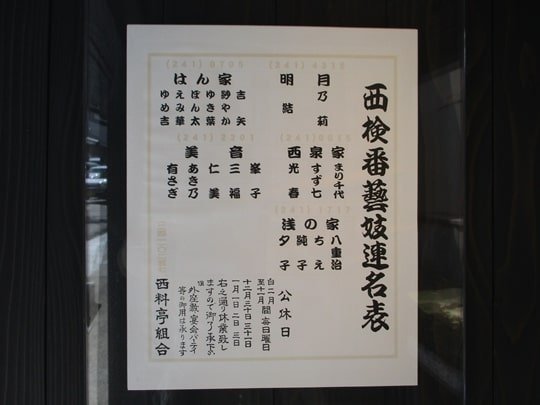 西検番藝妓連名表
(241) 4315
明月
乃莉
結
(241) 0705
はん家
吉矢
ゆき葉
ぽん太
えみ華
ゆめ吉
(241) 0015
西泉家
まり千代
すず七
光春
(241) 2201
美音
峯子
三福
仁美
あき乃
有さぎ
(241) 1717
浅の家
八重治
ちえ
純子
夕子
公休日
自二月
至十一月
間毎日曜日
十二月三十日三十一日
一月一日 二日 三日
右之通り休業致し
ますので御了承下さい
外座敷、宴会パーティ
等の御用は承ります
西料亭組合